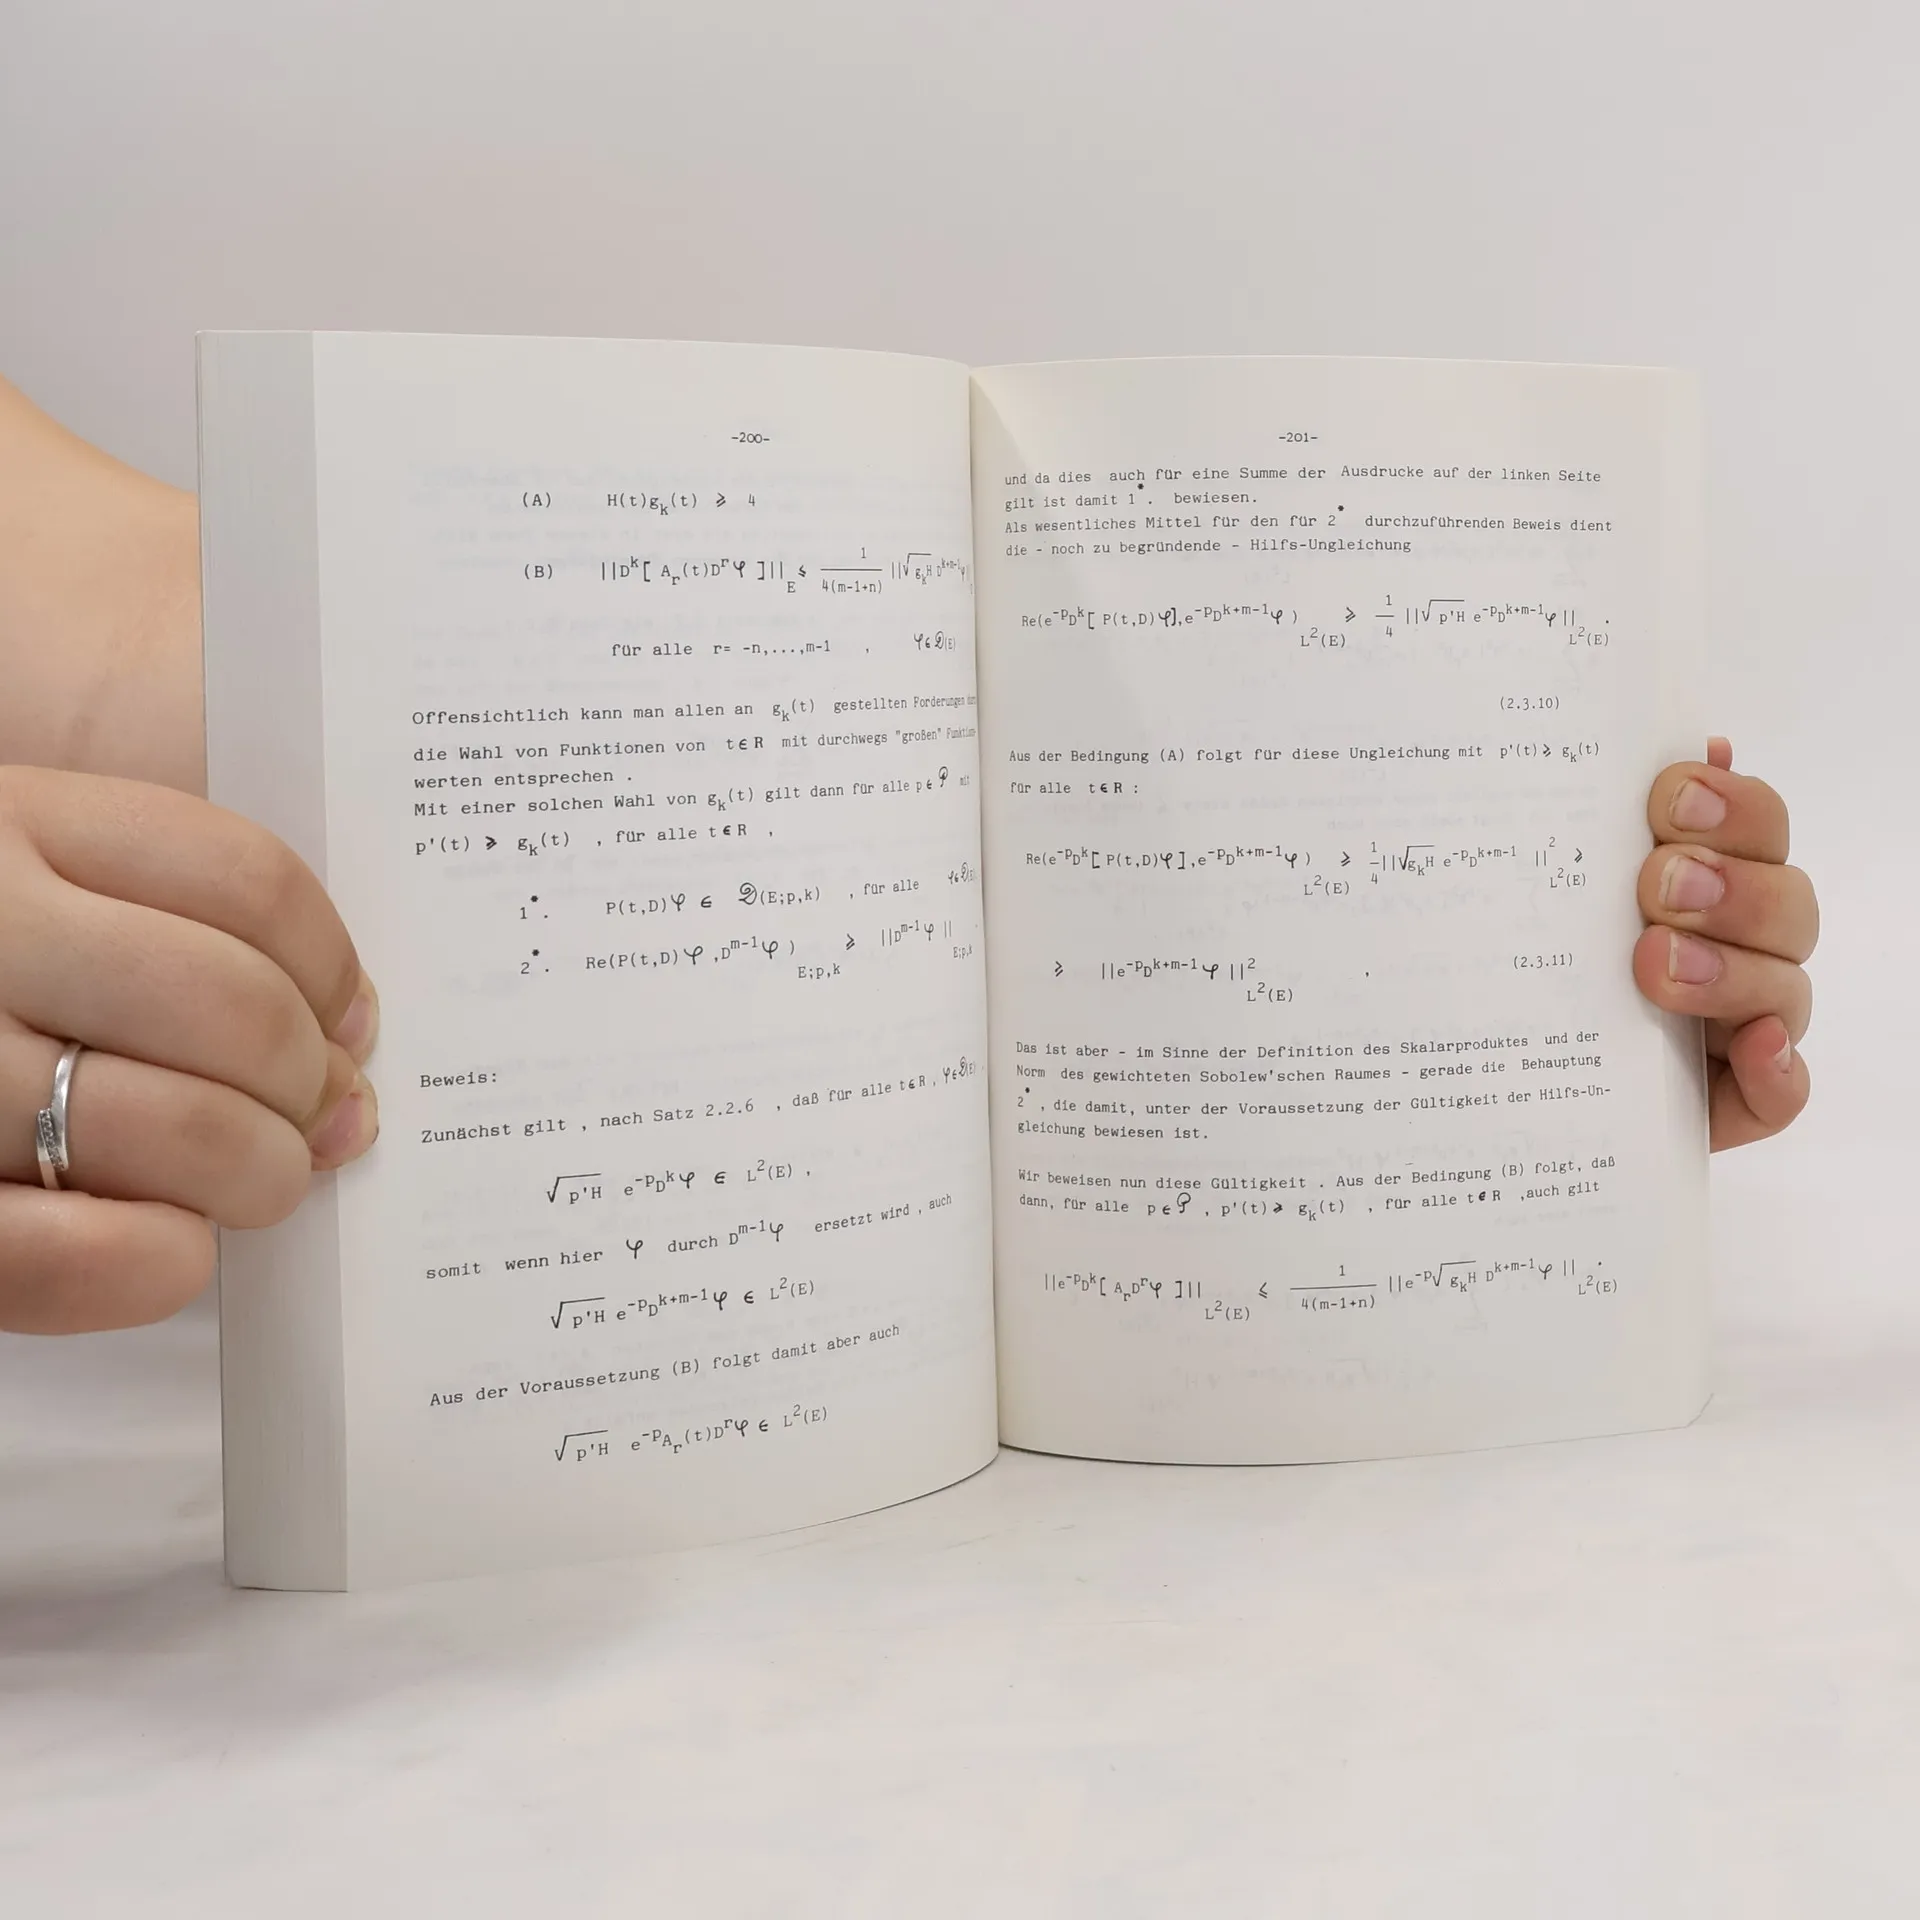 -200-
(A) H(t)gₖ(t) ⩾ 4
(B) ||Dᵏ[ Aᵣ(t)Dʳφ ]||_E ⩽ 1/4(m-1+n) ||√gₖH Dᵏ⁺ᵐ⁻¹φ||
für alle r= -n,...,m-1 , φϵ𝒟(E)
Offensichtlich kann man allen an gₖ(t) gestellten Forderungen
die Wahl von Funktionen von tϵR mit durchwegs "großen" Funktions-
werten entsprechen .
Mit einer solchen Wahl von gₖ(t) gilt dann für alle pϵ𝒫 mit
p'(t) ⩾ gₖ(t) , für alle tϵR ,
1*. P(t,D)φ ϵ 𝒟(E;p,k) , für alle φϵ𝒟(E)
2*. Re(P(t,D)φ ,Dᵐ⁻¹φ )_E;p,k ⩾ ||Dᵐ⁻¹φ ||_E;p,k
Beweis:
Zunächst gilt , nach Satz 2.2.6 , daß für alle tϵR , φϵ𝒟(E)
√p'H e⁻ᵖDᵏφ ϵ L²(E) ,
somit wenn hier φ durch Dᵐ⁻¹φ ersetzt wird , auch
√p'H e⁻ᵖDᵏ⁺ᵐ⁻¹φ ϵ L²(E)
Aus der Voraussetzung (B) folgt damit aber auch
√p'H e⁻ᵖAᵣ(t)Dʳφ ϵ L²(E)
-201-
und da dies auch für eine Summe der Ausdrucke auf der linken Seite
gilt ist damit 1*. bewiesen.
Als wesentliches Mittel für den für 2* durchzuführenden Beweis dient
die - noch zu begründende - Hilfs-Ungleichung
Re(e⁻ᵖDᵏ[ P(t,D)φ],e⁻ᵖDᵏ⁺ᵐ⁻¹φ )_L²(E) ⩾ 1/4 ||√p'H e⁻ᵖDᵏ⁺ᵐ⁻¹φ||_L²(E) .
(2.3.10)
Aus der Bedingung (A) folgt für diese Ungleichung mit p'(t)⩾ gₖ(t)
für alle tϵR :
Re(e⁻ᵖDᵏ[ P(t,D)φ],e⁻ᵖDᵏ⁺ᵐ⁻¹φ )_L²(E) ⩾ 1/4 ||√gₖH e⁻ᵖDᵏ⁺ᵐ⁻¹ ||²_L²(E) ⩾
⩾ ||e⁻ᵖDᵏ⁺ᵐ⁻¹φ ||²_L²(E) , (2.3.11)
Das ist aber - im Sinne der Definition des Skalarproduktes und der
Norm des gewichteten Sobolew'schen Raumes - gerade die Behauptung
2* , die damit, unter der Voraussetzung der Gültigkeit der Hilfs-Un-
gleichung bewiesen ist.
Wir beweisen nun diese Gültigkeit . Aus der Bedingung (B) folgt, daß
dann, für alle pϵ𝒫 , p'(t)⩾ gₖ(t) , für alle tϵR ,auch gilt
||e⁻ᵖDᵏ[ AᵣDʳφ ]||_L²(E) ⩽ 1/4(m-1+n) ||e⁻ᵖ√gₖH Dᵏ⁺ᵐ⁻¹φ ||_L²(E) .